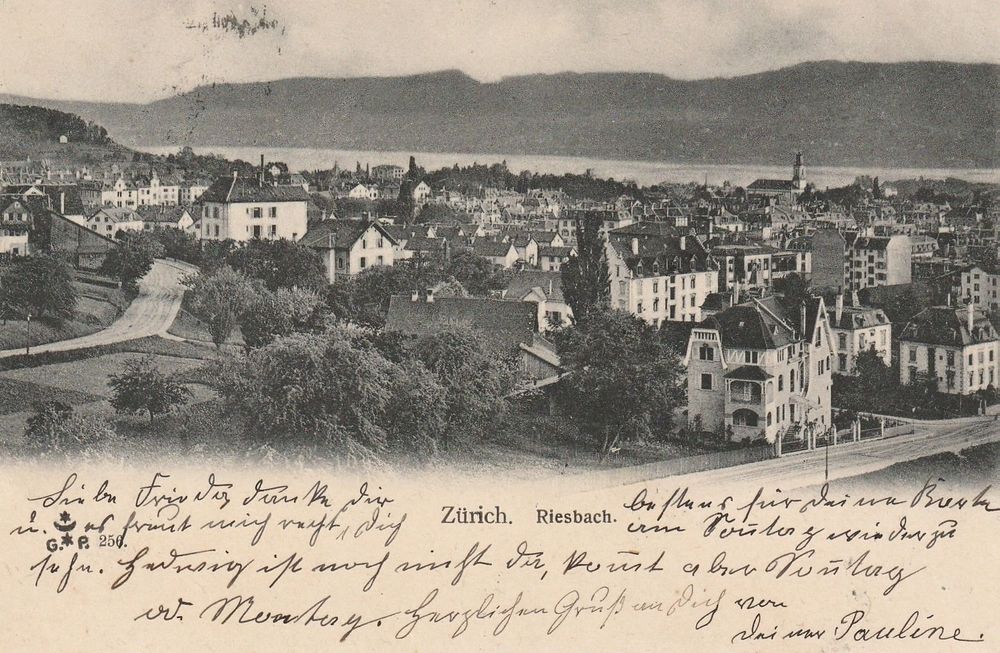 Liebe Frieda, danke dir bestens für deine Karte
u. es freut mich recht, dich am Sontag wieder zu
Zürich. Riesbach.
G. P. 256.
sehn. Hedwig ist noch nicht da, komt aber Sontag
od. Montag. Herzlichen Gruß an Dich von
deiner Pauline.